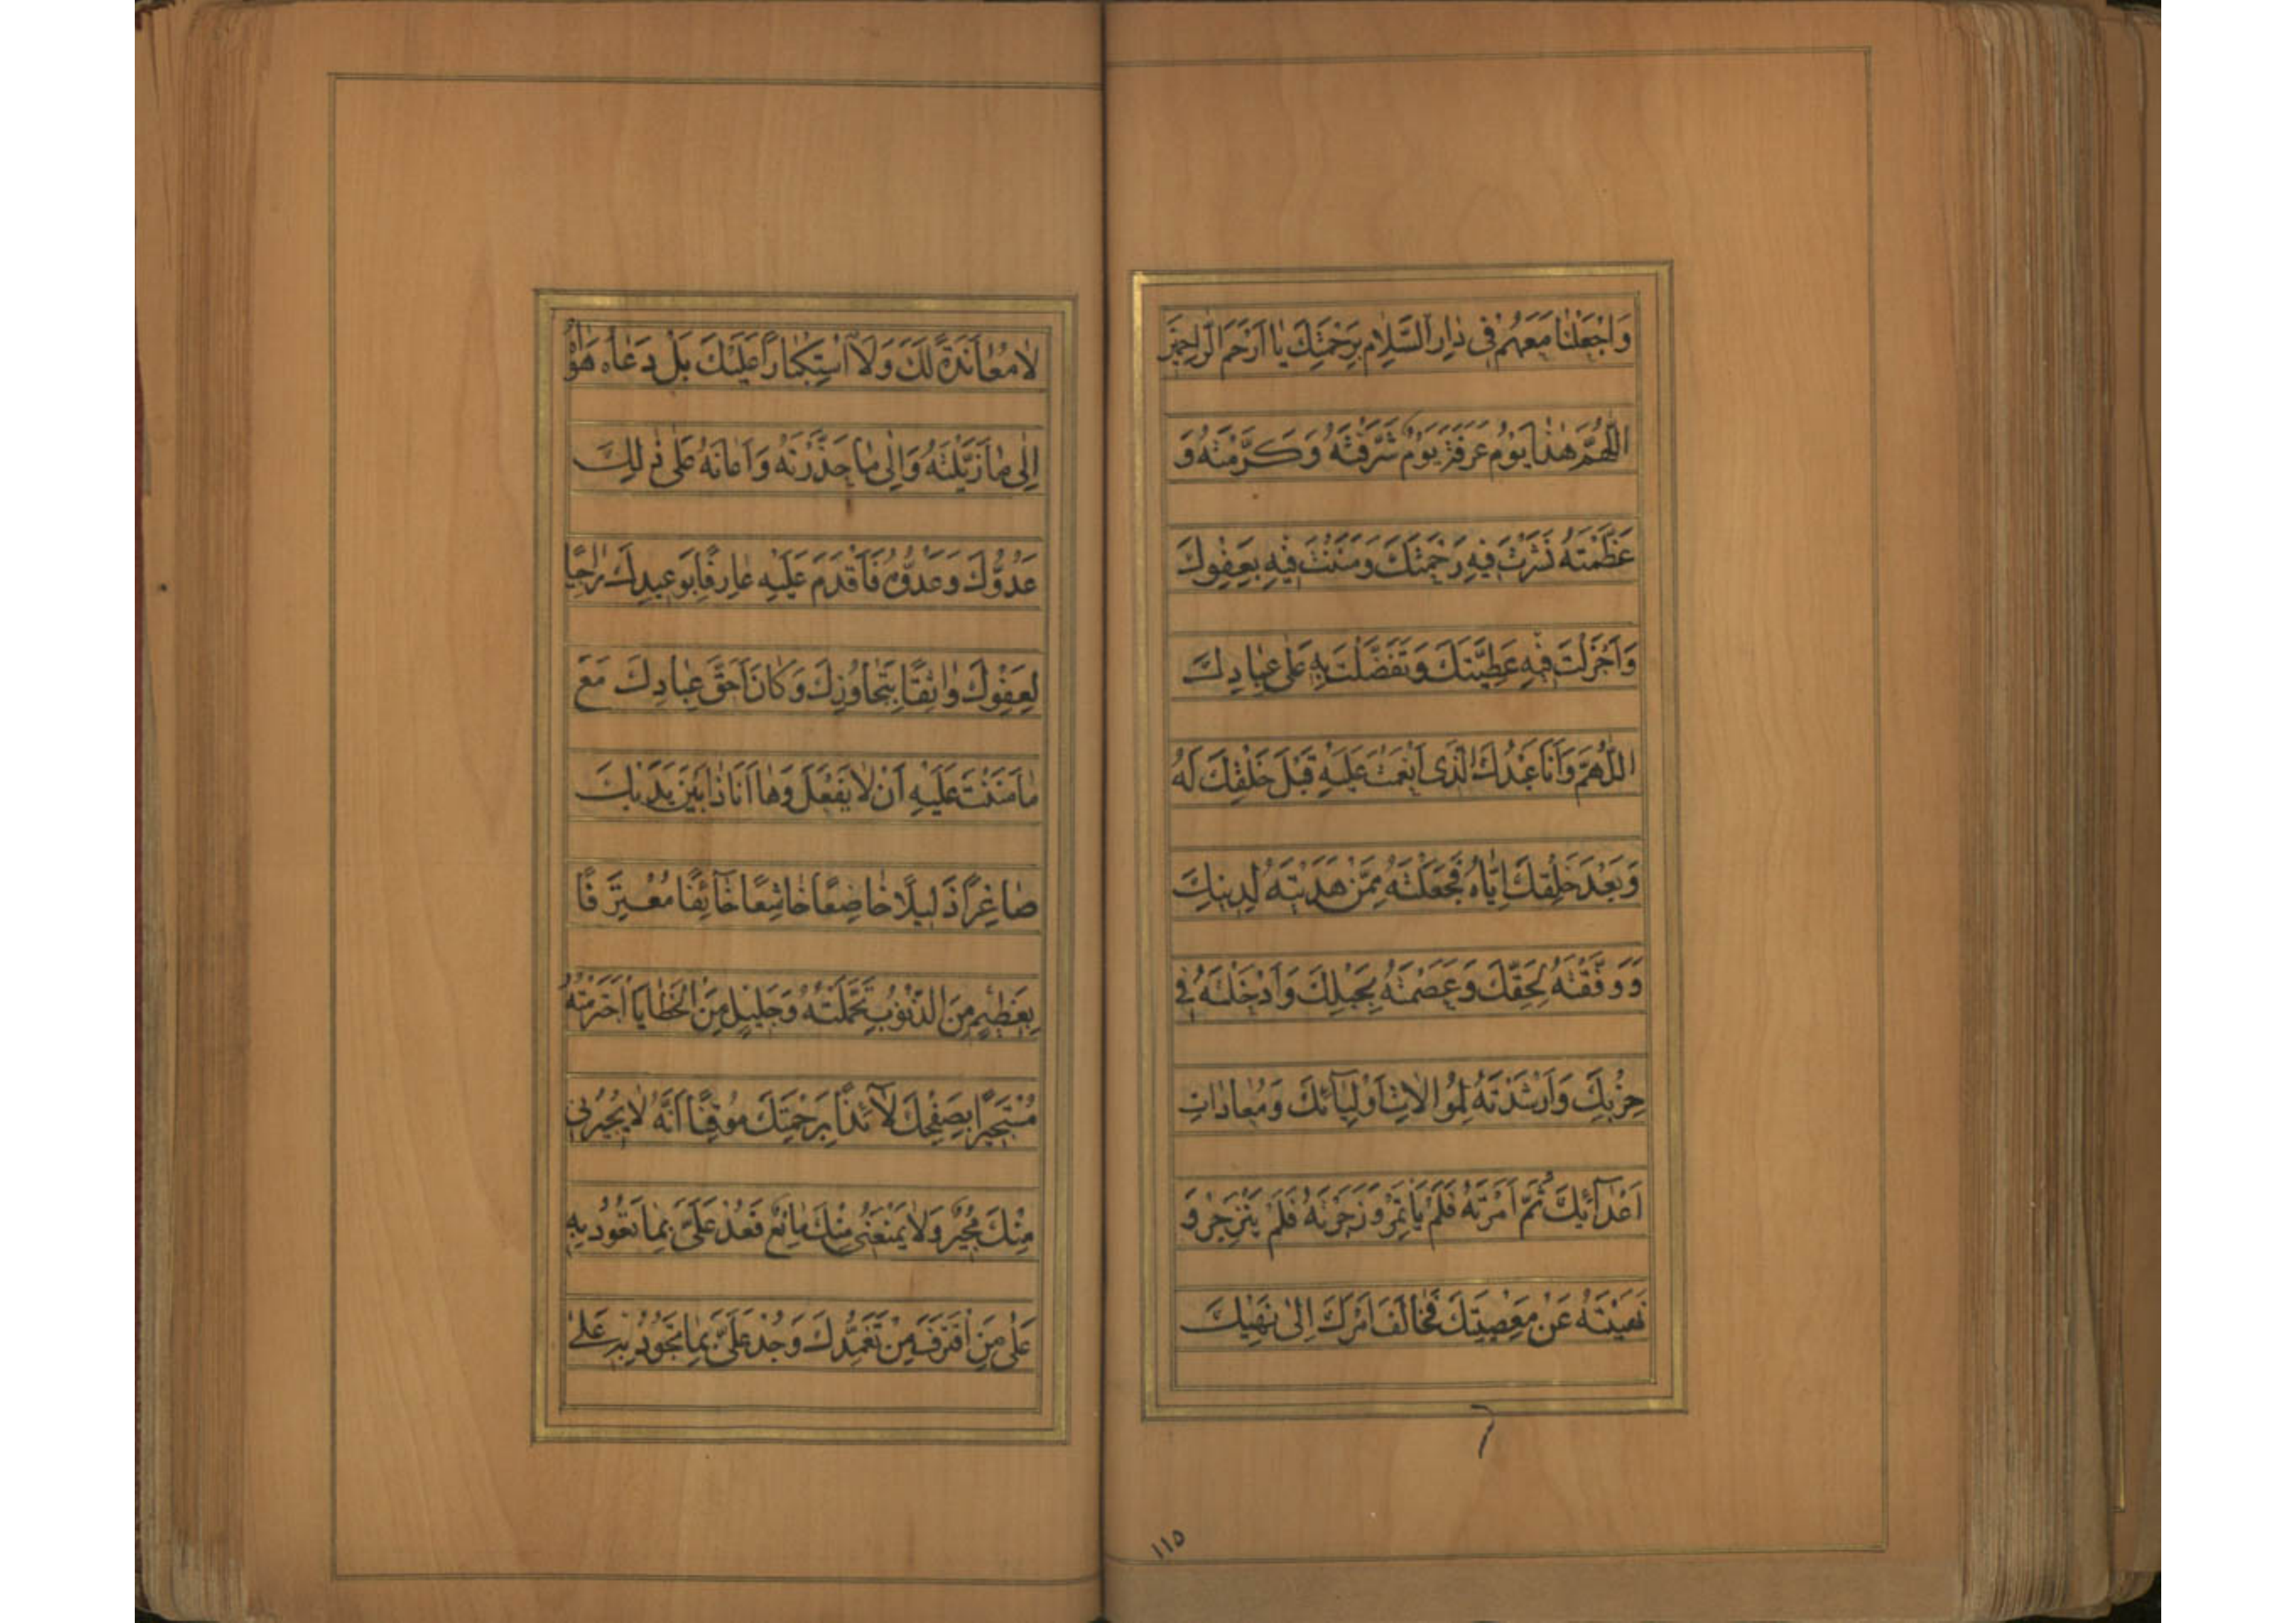 وَاجْعَلْنَا مَعَهُمْ فِی دَارِ السَّلَامِ بِرَحْمَتِكَ يَا اَرْحَمَ الرَّاحِمِينَ
اللّٰهُمَّ هٰذَا يَوْمُ عَرَفَةَ يَوْمٌ شَرَّفْتَهُ وَ كَرَّمْتَهُ وَ
عَظَّمْتَهُ نَشَرْتَ فِيهِ رَحْمَتَكَ وَ مَنَنْتَ فِيهِ بِعَفْوِكَ
وَ اَجْزَلْتَ فِيهِ عَطِيَّتَكَ وَ تَفَضَّلْتَ بِهِ عَلٰی عِبَادِكَ
اَللّٰهُمَّ وَ اَنَا عَبْدُكَ الَّذِی اَنْعَمْتَ عَلَيْهِ قَبْلَ خَلْقِكَ لَهُ
وَ بَعْدَ خَلْقِكَ اِيَّاهُ فَجَعَلْتَهُ مِمَّنْ هَدَيْتَهُ لِدِينِكَ
وَ وَفَّقْتَهُ لِحَقِّكَ وَ عَصَمْتَهُ بِحَبْلِكَ وَ اَدْخَلْتَهُ فِی
حِزْبِكَ وَ اَرْشَدْتَهُ لِمُوَالَاتِ اَوْلِيَآئِكَ وَ مُعَادَاتِ
اَعْدَآئِكَ ثُمَّ اَمَرْتَهُ فَلَمْ يَأْتَمِرْ وَ زَجَرْتَهُ فَلَمْ يَنْزَجِرْ وَ
نَهَيْتَهُ عَنْ مَعْصِيَتِكَ فَخَالَفَ اَمْرَكَ اِلٰی نَهْيِكَ
١١٥
لَا مُعَانَدَةً لَكَ وَ لَا اسْتِكْبَارًا عَلَيْكَ بَلْ دَعَاهُ هَوَاهُ
اِلٰی مَا زَيَّلْتَهُ وَ اِلٰی مَا حَذَّرْتَهُ وَ اَعَانَهُ عَلٰی ذٰلِكَ
عَدُوُّكَ وَ عَدُوُّهُ فَاَقْدَمَ عَلَيْهِ عَارِفًا بِوَعِيدِكَ رَاجِيًا
لِعَفْوِكَ وَاثِقًا بِتَجَاوُزِكَ وَ كَانَ اَحَقَّ عِبَادِكَ مَعَ
مَا مَنَنْتَ عَلَيْهِ اَنْ لَا يَفْعَلَ وَ هَا اَنَا ذَا بَيْنَ يَدَيْكَ
صَاغِرًا ذَلِيلًا خَاضِعًا خَاشِعًا خَآئِفًا مُعْتَرِفًا
بِعَظِيمٍ مِنَ الذُّنُوبِ تَحَمَّلْتُهُ وَ جَلِيلٍ مِنَ الْخَطَايَا اجْتَرَمْتُهُ
مُسْتَجِيرًا بِصَفْحِكَ لَآئِذًا بِرَحْمَتِكَ مُوقِنًا اَنَّهُ لَا يُجِيرُنِی
مِنْكَ مُجِيرٌ وَ لَا يَمْنَعُنِی مِنْكَ مَانِعٌ فَعُدْ عَلَیَّ بِمَا تَعُودُ بِهِ
عَلٰی مَنِ اقْتَرَفَ مِنْ تَغَمُّدِكَ وَ جُدْ عَلَیَّ بِمَا تَجُودُ بِهِ عَلٰی